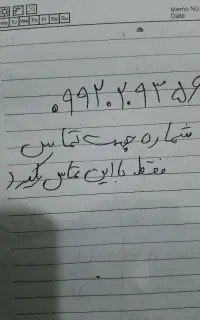 Memo No.
Date
Mo Tu We Th Fr Sa Su
۰۹۹۲۰۲۰۹۳۵۶
شماره جهت تماس
فقط با این تماس بگیرید